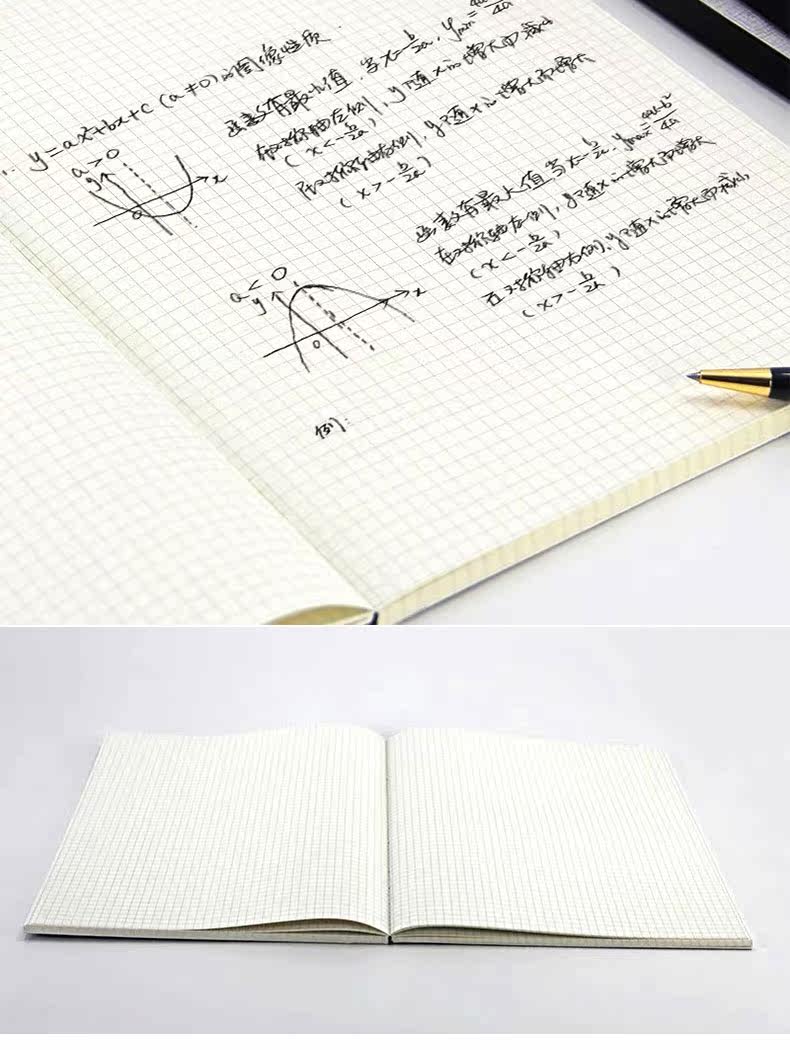 1. y=ax²+bx+c (a≠0)的图像性质.
a>0
y
x
o
函数有最小值,当x=-b/2a, ymin=4ac-b²/4a
在对称轴左侧,y随x的增大而减小
(x<-b/2a)
在对称轴右侧,y随x的增大而增大
(x>-b/2a)
a<0
y
x
o
函数有最大值,当x=-b/2a, ymax=4ac-b²/4a
在对称轴左侧,y随x的增大而增大
(x<-b/2a)
在对称轴右侧,y随x的增大而减小,
(x>-b/2a)
例: